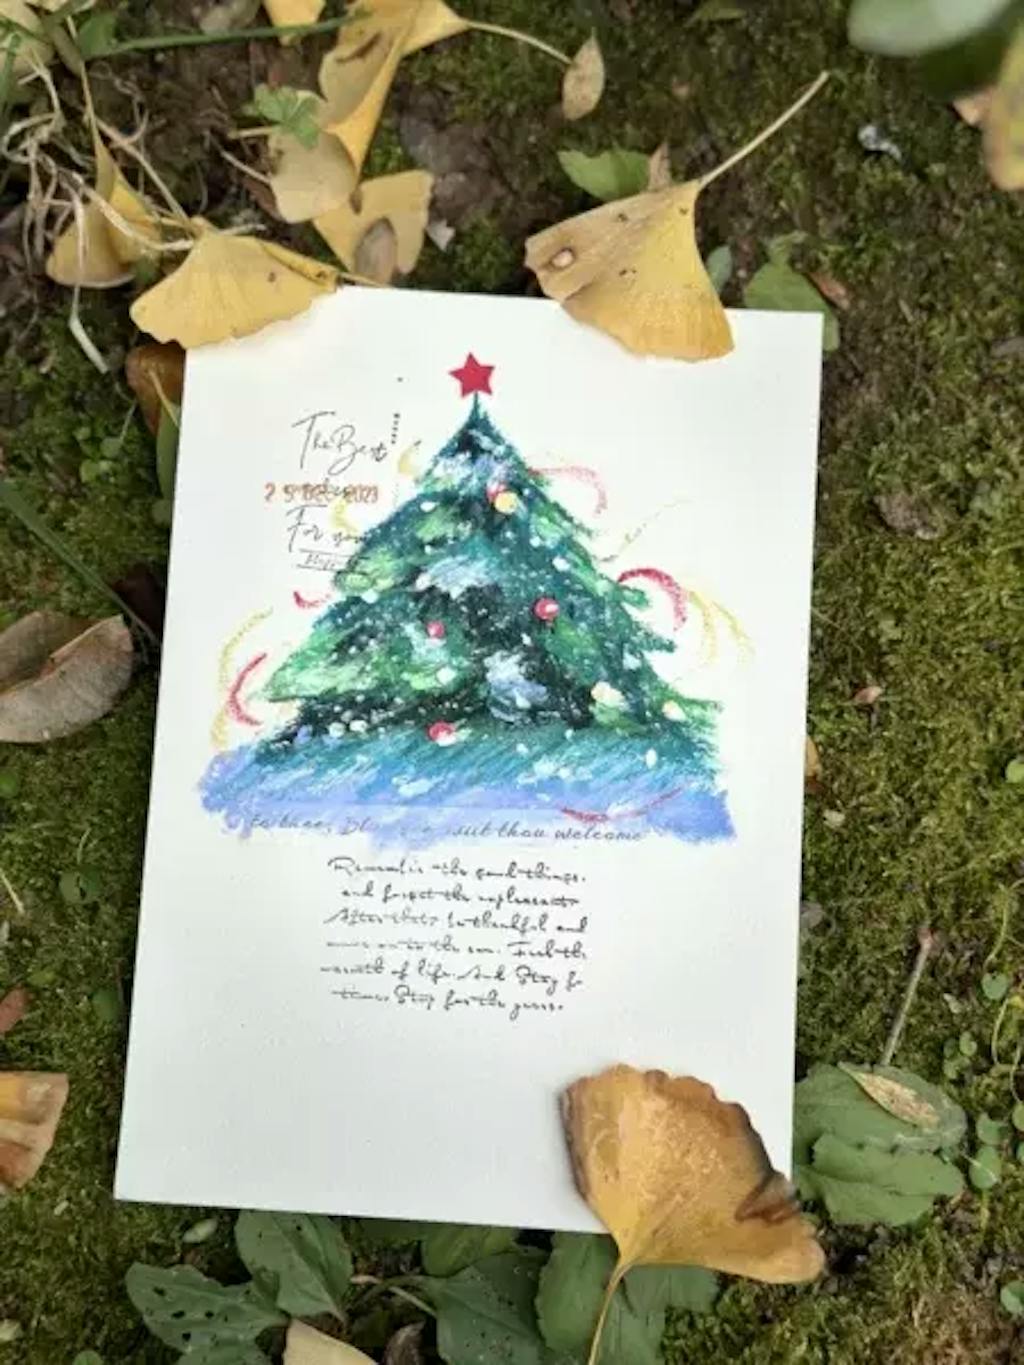 The Best
2 5 DEC 2023
For you
thou welcome
Remember the good things.
and forget the unpleasant
After that be thankful and
move on to the sun. Feel the
warmth of life. And Stay
time. Stop for the